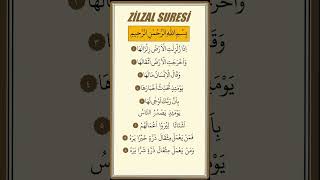 ZİLZAL SURESİ
بِسْمِ اللّٰهِ الرَّحْمٰنِ الرَّحِيمِ
اِذَا زُلْزِلَتِ الْاَرْضُ زِلْزَالَهَا ١
وَاَخْرَجَتِ الْاَرْضُ اَثْقَالَهَا ٢
وَقَالَ الْاِنْسَانُ مَالَهَا ٣
يَوْمَئِذٍ تُحَدِّثُ اَخْبَارَهَا ٤
بِاَنَّ رَبَّكَ اَوْحٰى لَهَا ٥
يَوْمَئِذٍ يَصْدُرُ النَّاسُ
اَشْتَاتًا لِيُرَوْا اَعْمَالَهُمْ ٦
فَمَنْ يَعْمَلْ مِثْقَالَ ذَرَّةٍ خَيْرًا يَرَهُ ٧
وَمَنْ يَعْمَلْ مِثْقَالَ ذَرَّةٍ شَرًّا يَرَهُ ٨